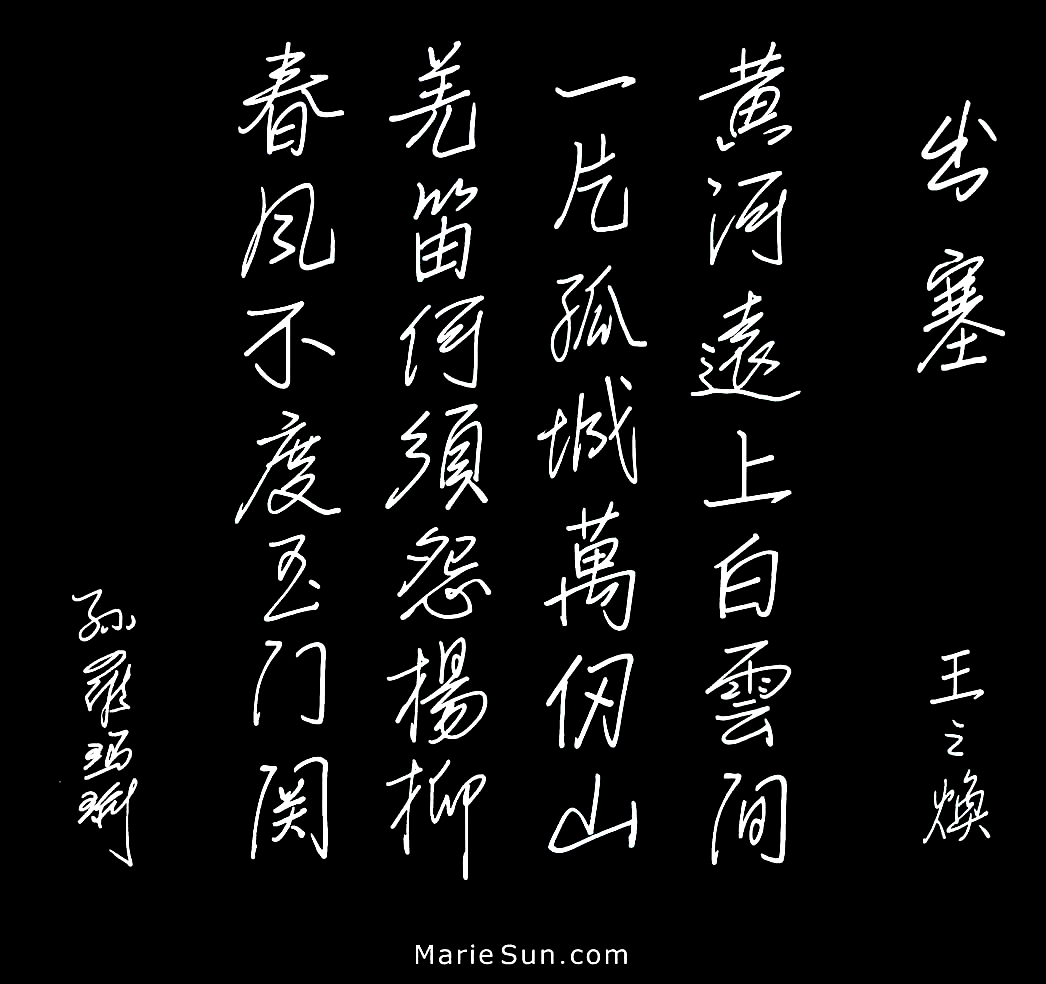 出塞
王之煥
黃河遠上白雲间
一片孤城萬仞山
羌笛何須怨楊柳
春风不度玉门関
孫羅瑪琍
MarieSun.com